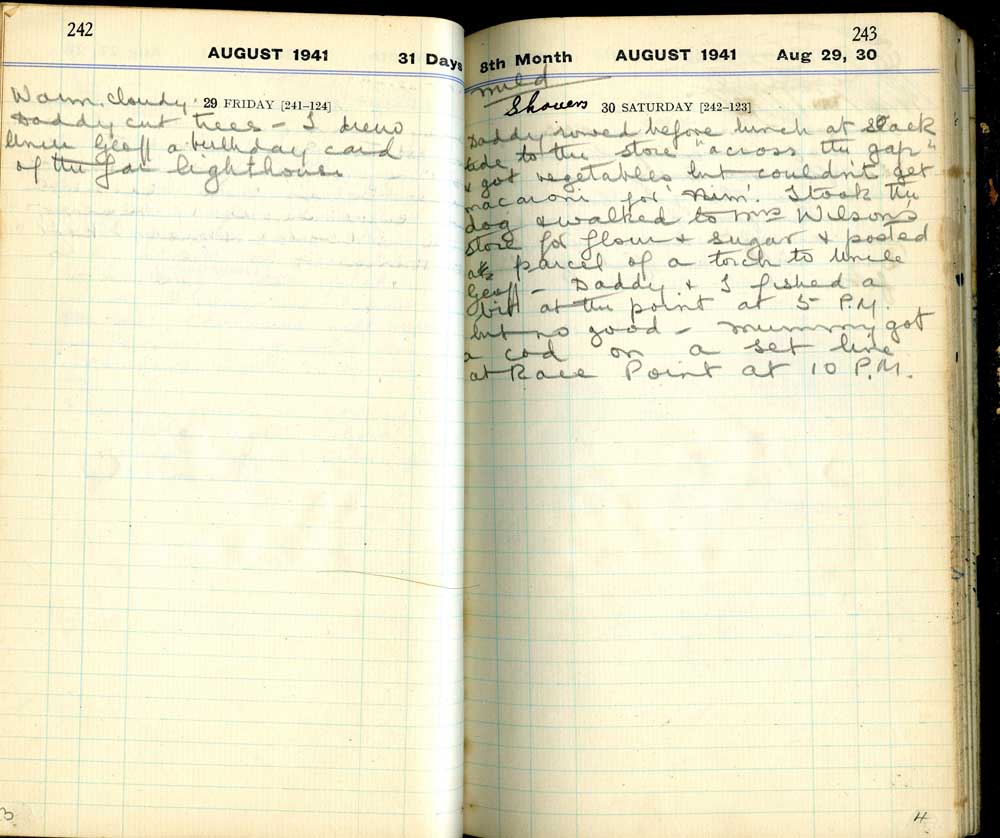 242
AUGUST 1941 31 Days
Warm. cloudy. 29 FRIDAY [241–124]
Daddy cut trees – I drew
Uncle Geoff a birthday card
of the Gap lighthouse
243
8th Month AUGUST 1941 Aug 29, 30
mild
Showers 30 SATURDAY [242–123]
Daddy rowed before lunch at slack
tide to the store "across the gap"
& got vegetables but couldn't get
macaroni for 'Nim'. I took the
dog & walked to Mrs Wilson's
store for flour & sugar & posted
a parcel of a torch to Uncle
Geoff – Daddy & I fished a
bit at the point at 5 P.M.
but no good – Mummy got
a cod on a set line
at Race Point at 10 P.M.
3
4